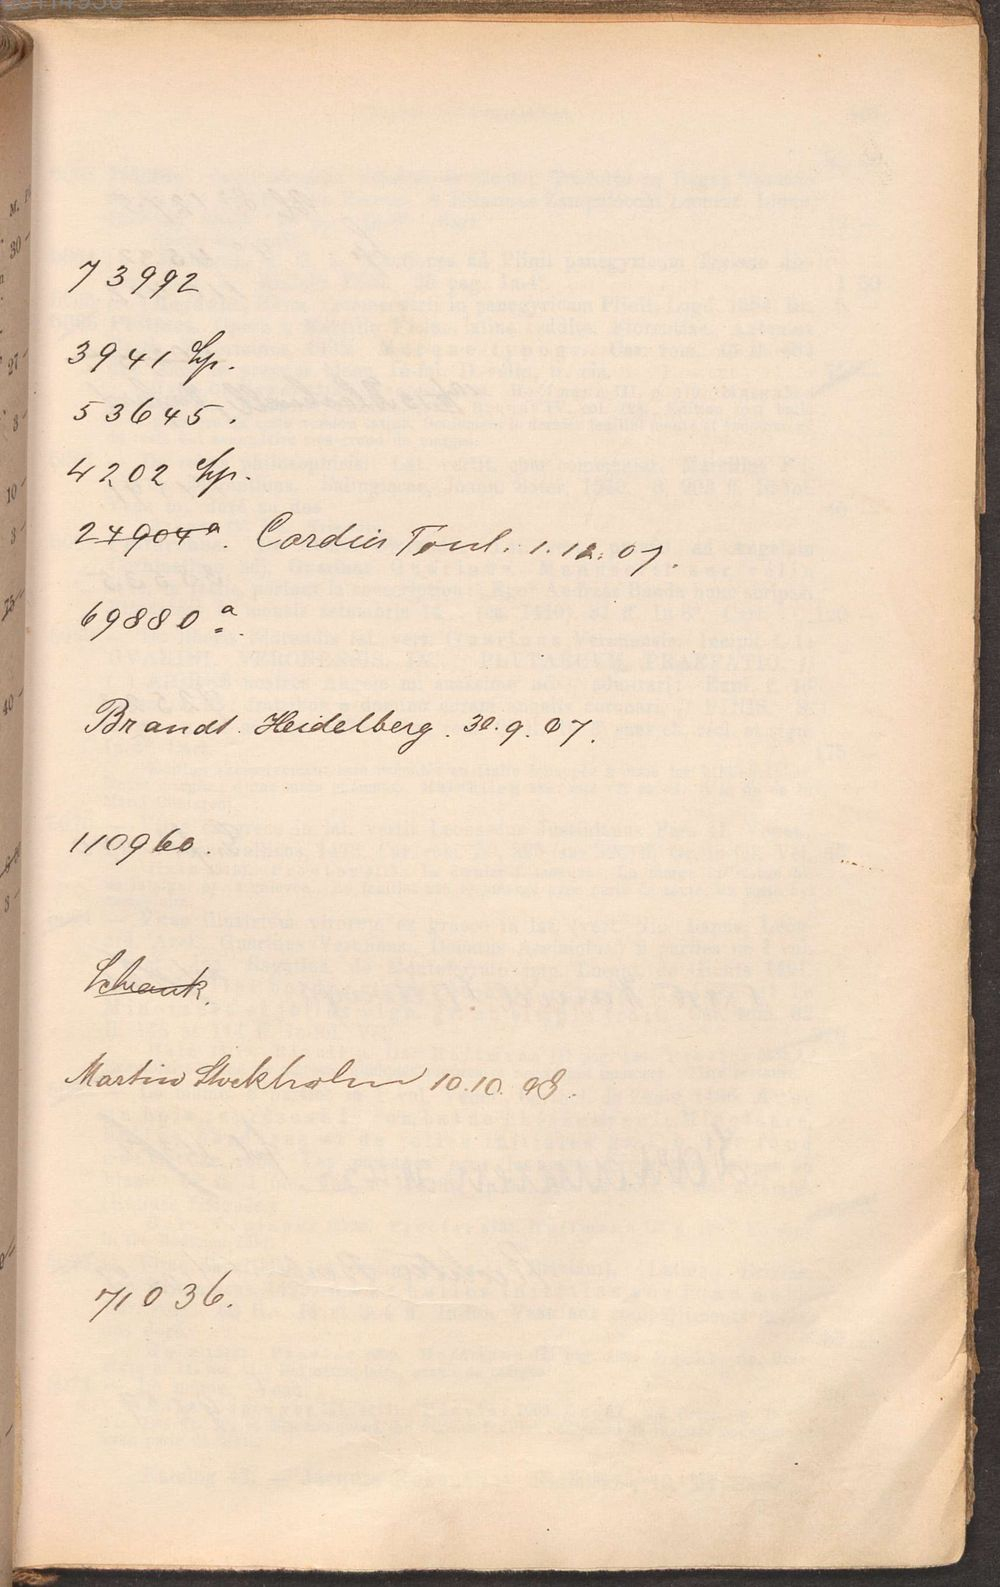 73992
3941 Lp.
53645.
4202 Lp.
24904a. Cordier Toul. 1.12.07.
69880a.
Brandt. Heidelberg. 30.9.07.
110960.
Schrank.
Martin Stockholm 10.10.08.
71036.